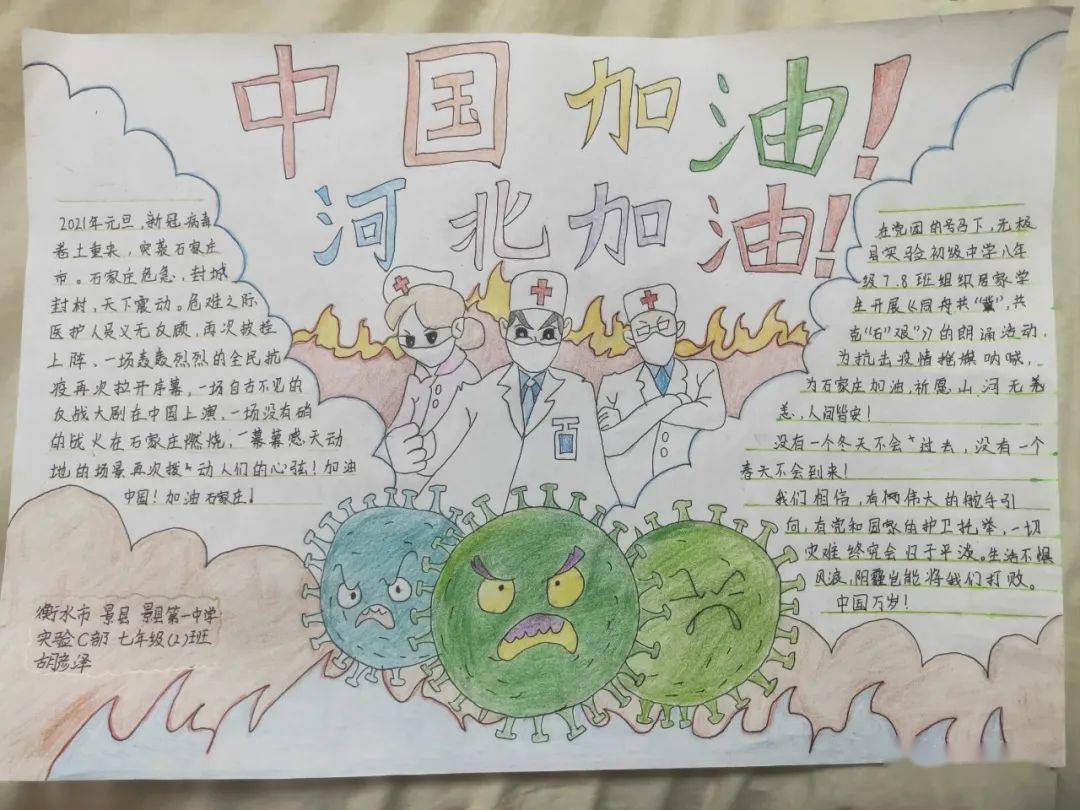 中国加油!
河北加油!
2021年元旦,新冠病毒
卷土重来,突袭石家庄
市。石家庄危急,封城
封村,天下震动。危难之际,
医护人员义无反顾,再次披挂
上阵、一场轰轰烈烈的全民抗
疫再次拉开序幕,一场自古不见的
反战大剧在中国上演、一场没有硝
的战火在石家庄燃烧,一幕幕感天动
地的场景再次拨动人们的心弦!加油
中国!加油石家庄!
衡水市 景县 景县第一中学
实验C部 七年级(2)班
胡彦泽
在党团的号召下,无极
县实验初级中学八年
级7.8班组织居家学
生开展《同舟共“冀”,共
克“石”艰》》的朗诵活动,
为抗击疫情摇旗呐喊,
为石家庄加油,祈愿山河无恙
恙,人间皆安!
没有一个冬天不会过去,没有一个
春天不会到来!
我们相信,有伟大的舵手引
向,有党和国家的护卫托举,一切
灾难终究会归于平波。生活不惧
风浪,阴霾岂能将我们打败。
中国万岁!